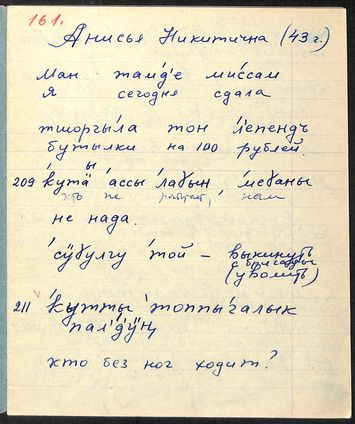 161.
Анисья Никитична (43 г.)
Ман тамд'е миссам
я сегодня сдала
тшоргы́ла тон л'епендъ
бутылки на 100 рублей.
209 кута́ ы ассы лабын, мебаны
кто не работает, нам
не нада.
сӱбулгу той – выкинуть
с бригады
(уволить)
211 кутты топпы́галык
пал'дӱң
кто без ног ходит?